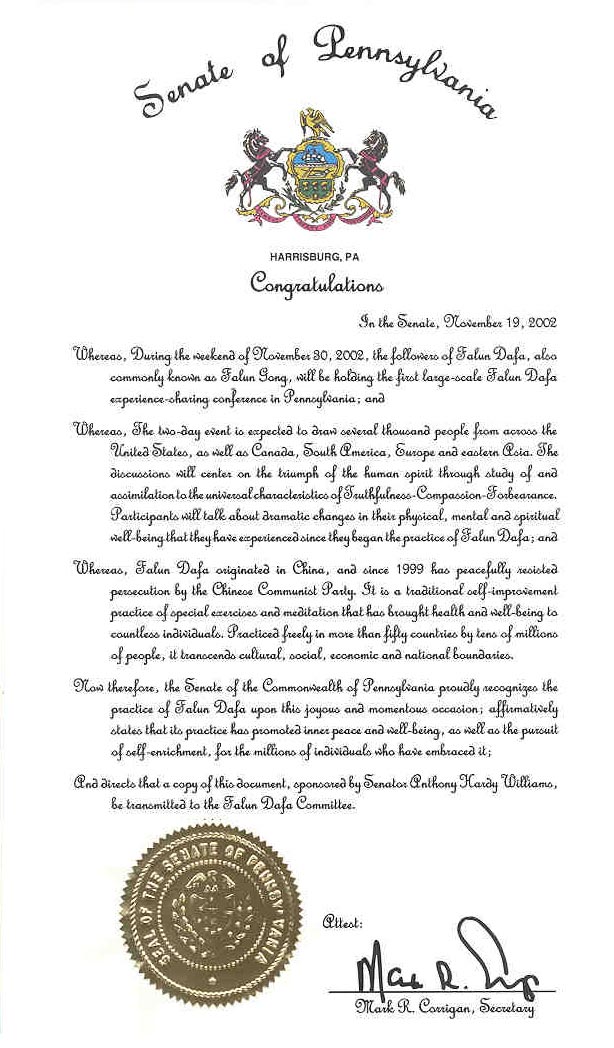 Senate of Pennsylvania
HARRISBURG, PA
Congratulations
In the Senate, November 19, 2002
Whereas, During the weekend of November 30, 2002, the followers of Falun Dafa, also
commonly known as Falun Gong, will be holding the first large-scale Falun Dafa
experience-sharing conference in Pennsylvania; and
Whereas, The two-day event is expected to draw several thousand people from across the
United States, as well as Canada, South America, Europe and eastern Asia. The
discussions will center on the triumph of the human spirit through study of and
assimilation to the universal characteristics of Truthfulness-Compassion-Forbearance.
Participants will talk about dramatic changes in their physical, mental and spiritual
well-being that they have experienced since they began the practice of Falun Dafa; and
Whereas, Falun Dafa originated in China, and since 1999 has peacefully resisted
persecution by the Chinese Communist Party. It is a traditional self-improvement
practice of special exercises and meditation that has brought health and well-being to
countless individuals. Practiced freely in more than fifty countries by tens of millions
of people, it transcends cultural, social, economic and national boundaries.
Now therefore, the Senate of the Commonwealth of Pennsylvania proudly recognizes the
practice of Falun Dafa upon this joyous and momentous occasion; affirmatively
states that its practice has promoted inner peace and well-being, as well as the pursuit
of self-enrichment, for the millions of individuals who have embraced it;
And directs that a copy of this document, sponsored by Senator Anthony Hardy Williams,
be transmitted to the Falun Dafa Committee.
SEAL OF THE SENATE OF PENNSYLVANIA
Attest:
Mark R. Corrigan, Secretary